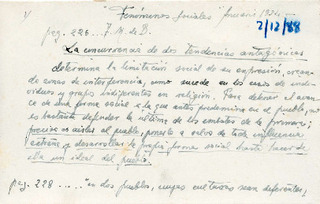 V "Fenómenos sociales" Anuario 1924 —
2/12/88
pag. 226... J. M. de B.
La convivencia de dos tendencias antagónicas
determina la limitación social de su expresión, crean-
do zonas de interferencia, como sucede en los casos de indi-
viduos y grupos indiferentes en religión. Para detener el avan-
ce de una forma social o la que esté predominando en el pueblo, no
es bastante defender la otra de los embates de la primera;
preciso es aislar al pueblo, ponerlo a salvo de toda influencia
extraña y desarrollar la propia forma social hasta hacer de
ella un ideal del pueblo.
pag. 228 ..... "en dos pueblos, cuyas culturas sean diferentes,